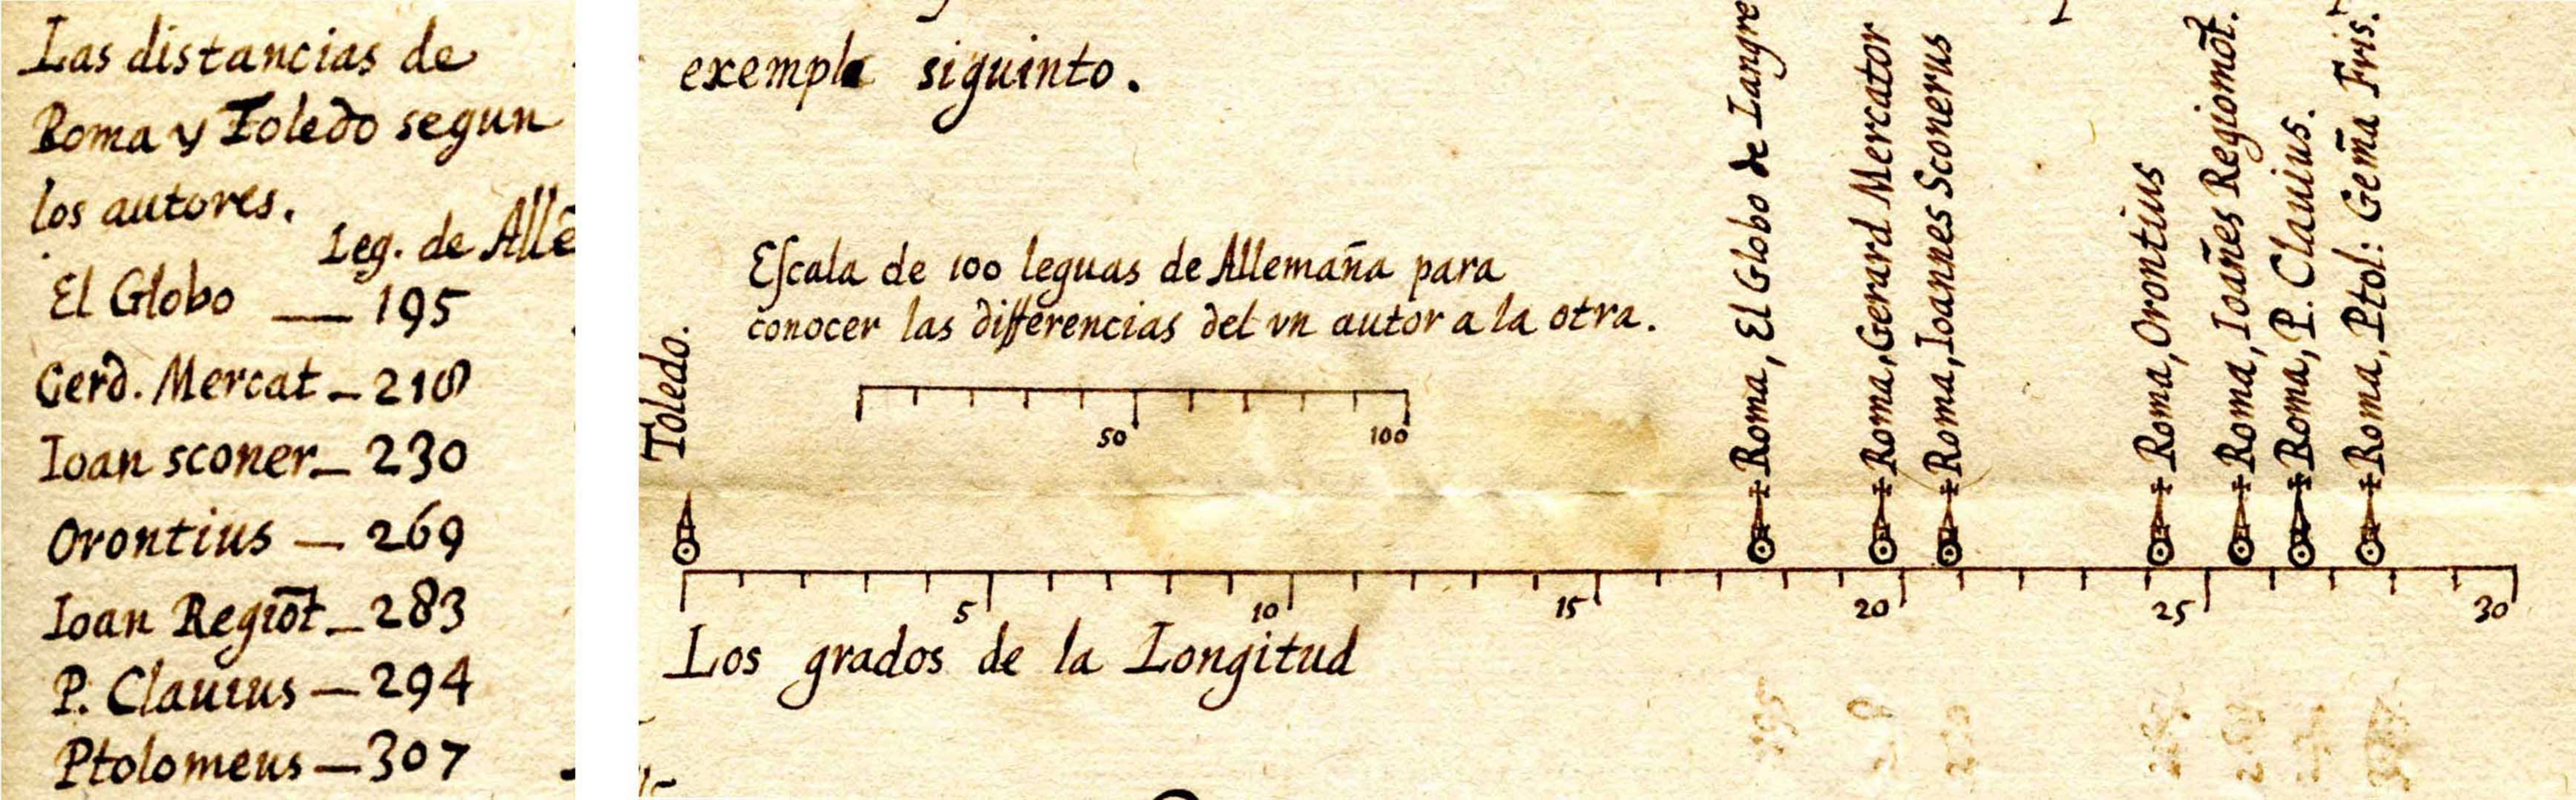 Las distancias de
Roma y Toledo segun
los autores.
Leg. de Allē
El Globo — 195
Gerd. Mercat — 218
Ioan sconer — 230
Orontius — 269
Ioan Regiōt — 283
P. Clauius — 294
Ptolomeus — 307
exemple siguinto.
Eſcala de 100 leguas de Allemaña para
conocer las differencias del vn autor a la otra.
50 100
Toledo.
Roma, El Globo de Langre
Roma, Gerard Mercator
Roma, Ioannes Sconerus
Roma, Orontius
Roma, Ioañes Regiomōt.
Roma, P. Clauius.
Roma, Ptol: Gem̄a Fris.
5 10 15 20 25 30
Los grados de la Longitud